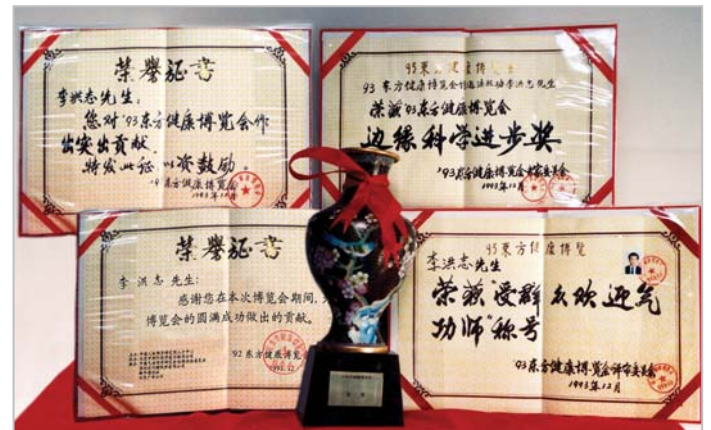 荣誉证书
李洪志先生:
您对'93东方健康博览会作
出突出贡献.
特发此证 以资鼓励。
东方健康博览会
1993年12月
93 东方健康博览会
李洪志先生
荣获'93东方健康博览会
边缘科学进步奖
'93东方健康博览会
1993年12月
荣誉证书
李洪志先生:
感谢您在本次博览会期间,
博览会的圆满成功做出的贡献。
92 东方健康博览
92.12.
方健康博览
李洪志先生
荣获"受群众欢迎气
功师"称号
'93东方健康博览会评审委员会
1993年12月